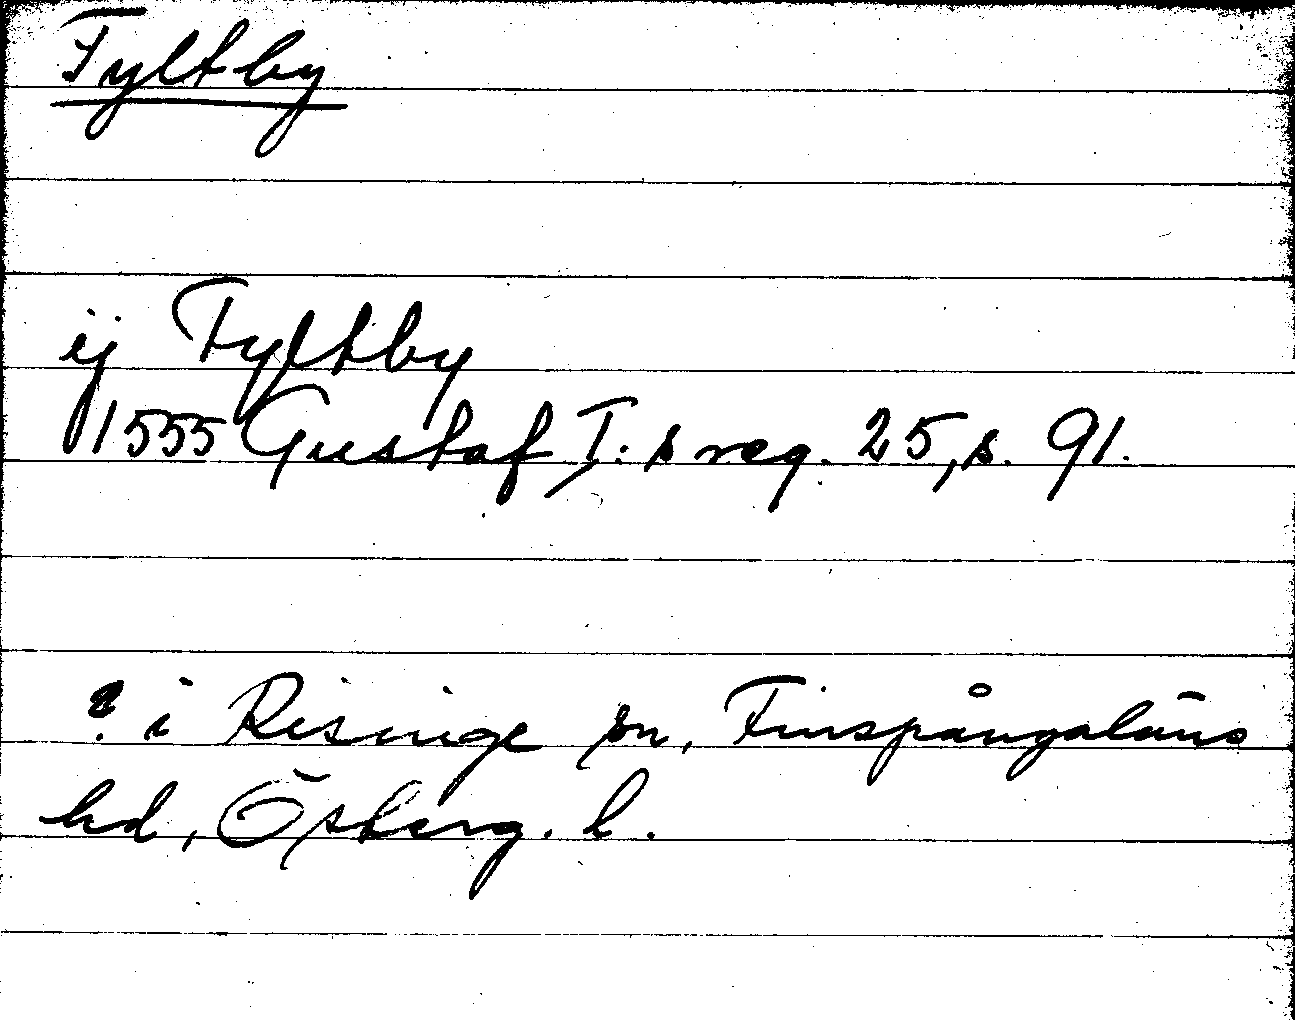 Fyltby
ij Fyltby
1555 Gustaf I:s reg. 25, s. 91.
? i Risinge sn, Finspångaläns
hd, Österg. l.